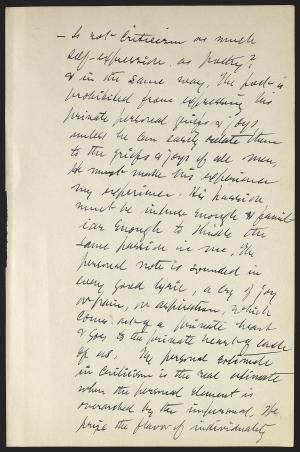 — Is not Criticism as much
self-expression as poetry?
& in the same way. The poet is
prohibited from expressing his
private personal griefs & joys
unless he can easily relate them
to the griefs & joys of all men,
he must make his experience
my experience. His passion
must be intense enough & famil-
iar enough to kindle the
same passion in me. The
personal note is sounded in
every good lyric, a cry of joy
or pain, or aspiration, which
comes out of a private heart
& goes to the private heart of each
of us. The personal estimate
in criticism is the real estimate
when the personal element is
overarched by the impersonal. We
prize the flavor of individuality